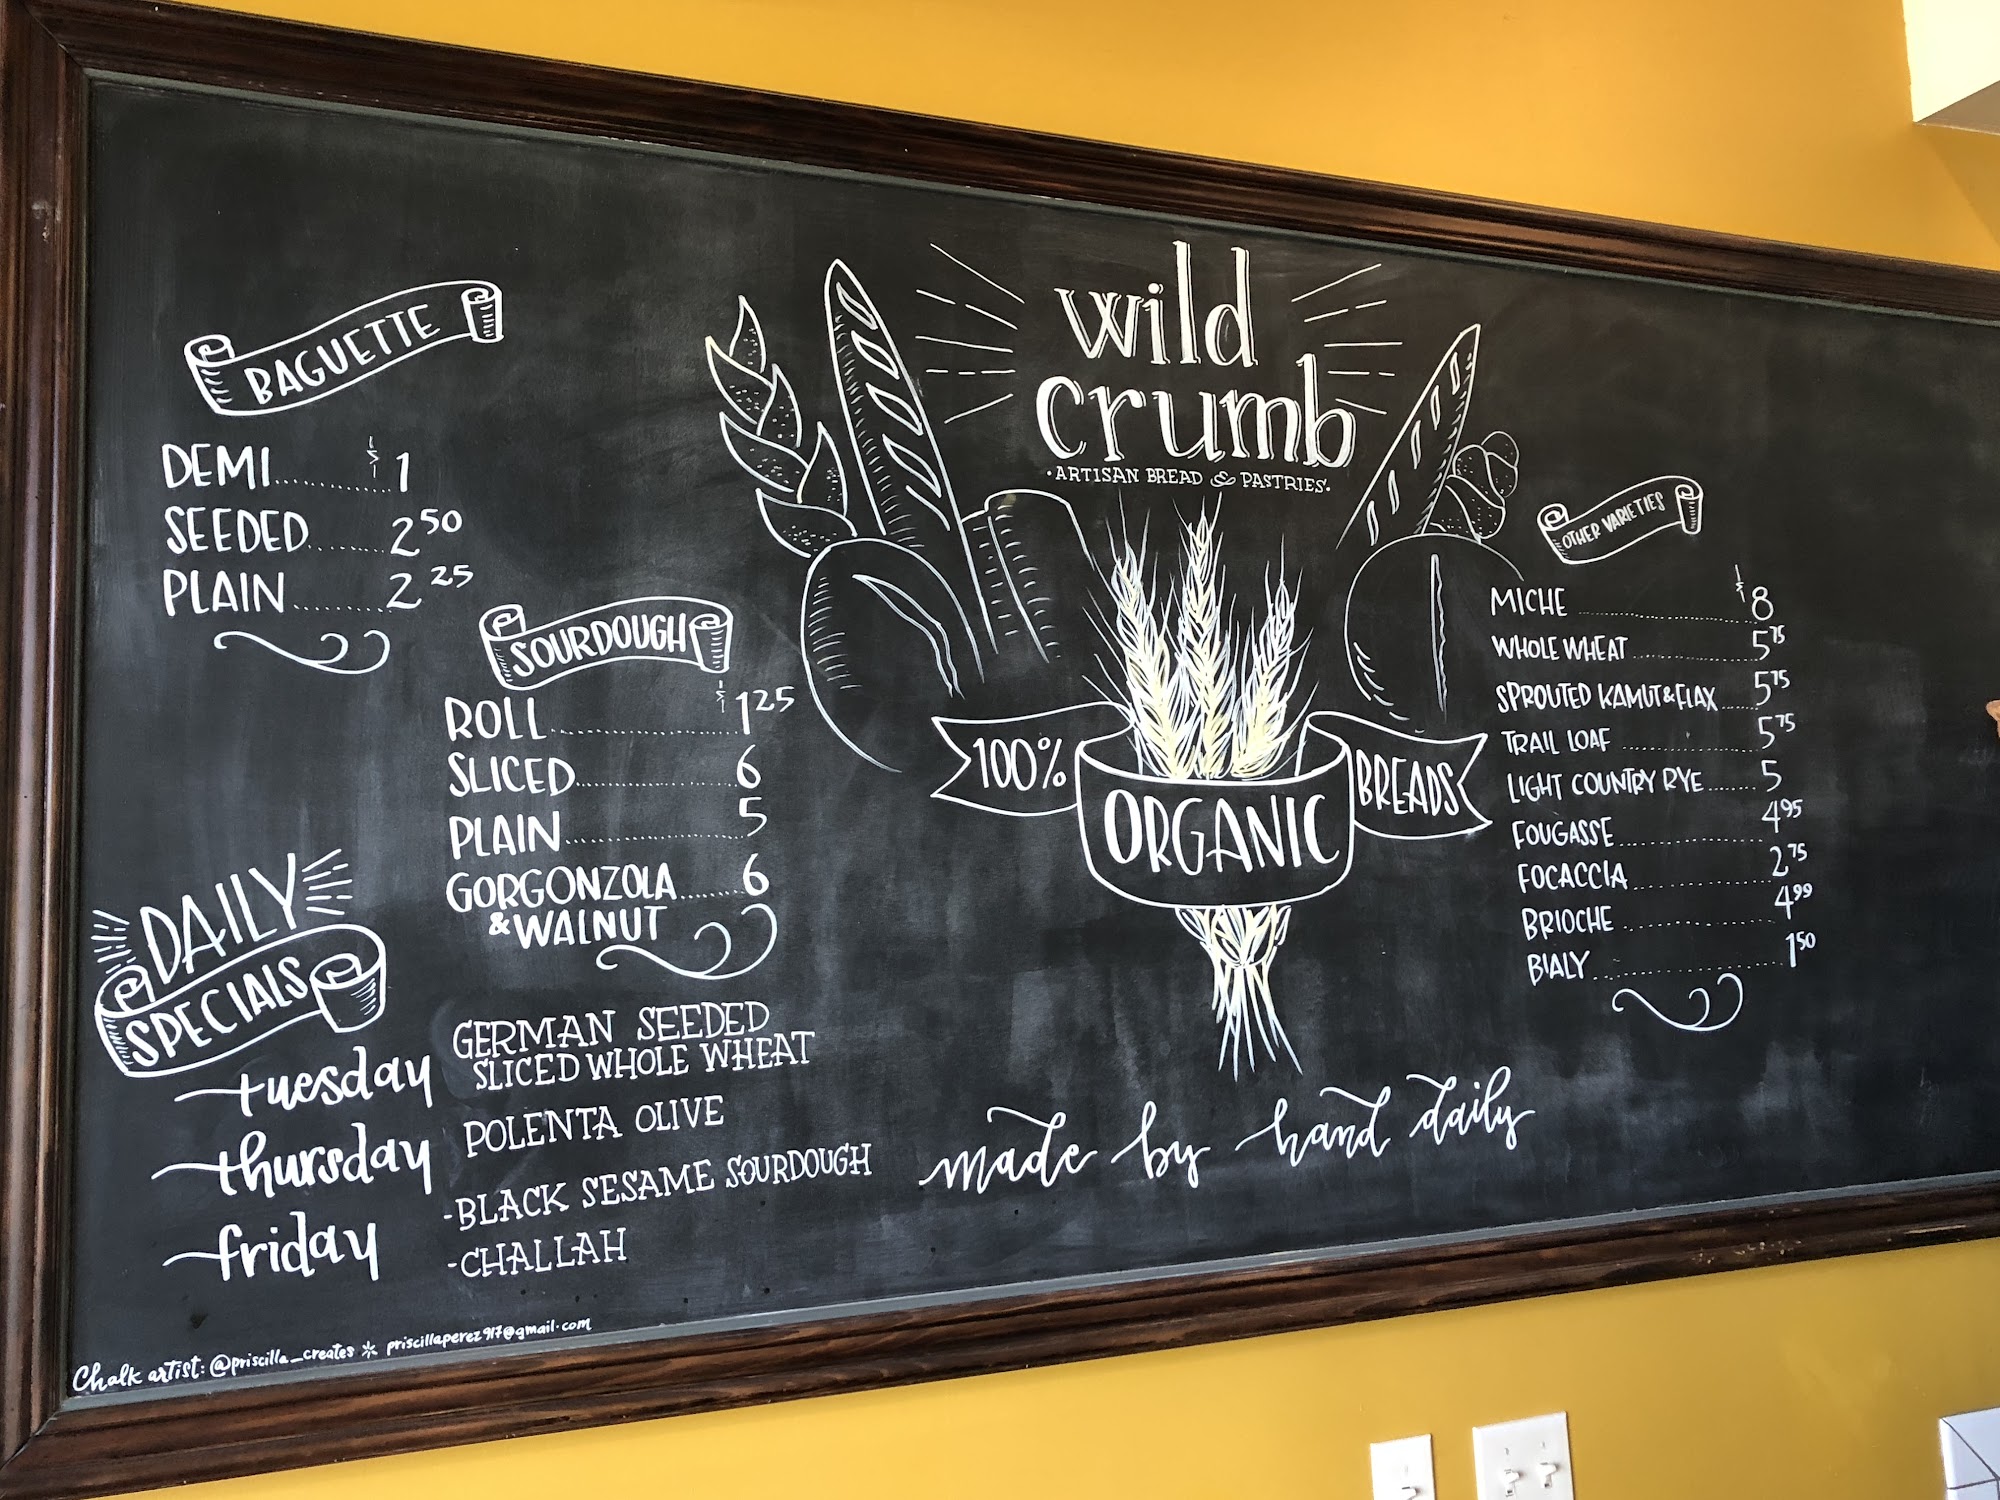 BAGUETTE
DEMI.............. $1
SEEDED........ 2 50
PLAIN......... 2 25
SOURDOUGH
ROLL........................ $1 25
SLICED........................ 6
PLAIN.......................... 5
GORGONZOLA...... 6
&WALNUT
DAILY
SPECIALS
tuesday GERMAN SEEDED
SLICED WHOLE WHEAT
thursday POLENTA OLIVE
friday -BLACK SESAME SOURDOUGH
-CHALLAH
Chalk artist: @priscilla_creates * priscillaperez917@gmail.com
wild
crumb
·ARTISAN BREAD & PASTRIES·
100% ORGANIC BREADS
made by hand daily
OTHER VARIETIES
MICHE ........................ $8
WHOLE WHEAT .................... 5 75
SPROUTED KAMUT&FLAX ..... 5 75
TRAIL LOAF .................... 5 75
LIGHT COUNTRY RYE ........ 5
FOUGASSE .................... 4 95
FOCACCIA .................... 2 75
BRIOCHE .................... 4 99
BIALY .......................... 1 50